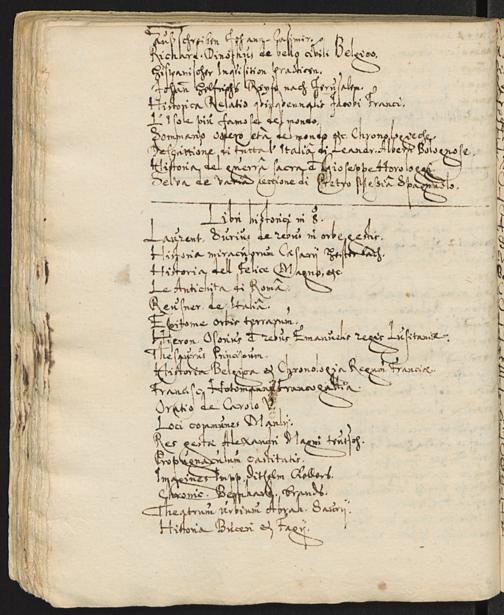 Außschreiben Johann Casimirs.
Richard. Dinothus de bello civili Belgico.
Hispanischer Inquisition practicen.
Johan Helfrichs Reyse nach Jerusalem.
Historica Relatio quinquennalis Jacobi Franci.
L'Isole più famose del mondo.
Sommario overo età del mondo etc Chronologiche.
Descrittione di tutta l'Italia di Leandr. Alberti Bolognese.
Historia del guerra sacra Giosephe Horologgi
Selva de varia lectione di Pietro Messia Spagnuolo.
Libri historici in 8.
Laurent. Surius de rebus in orbe gestis.
Historia miraculorum Cæsarij
Historia del Felice Magno, etc
Le Antichita di Roma.
Reusner de Italia.
Epitome orbis terrarum.
Hieron. Osorius de rebus Emanuelis regis Lusitaniæ.
Thesaurus Principum.
Historia Belgica et Chronologia Regum Franciæ
Francisci Hotomanni Francogallia
Oratio de Carolo V.
Loci communes Manlij.
Res gestæ Alexandri Magni teutsch.
Propugnaculum castitatis.
Imagines Impp.
Chronic. Bernhardi, Brands.
Theatrum urbium Abrah. Saurij.
Historia Buceri et Fagij.